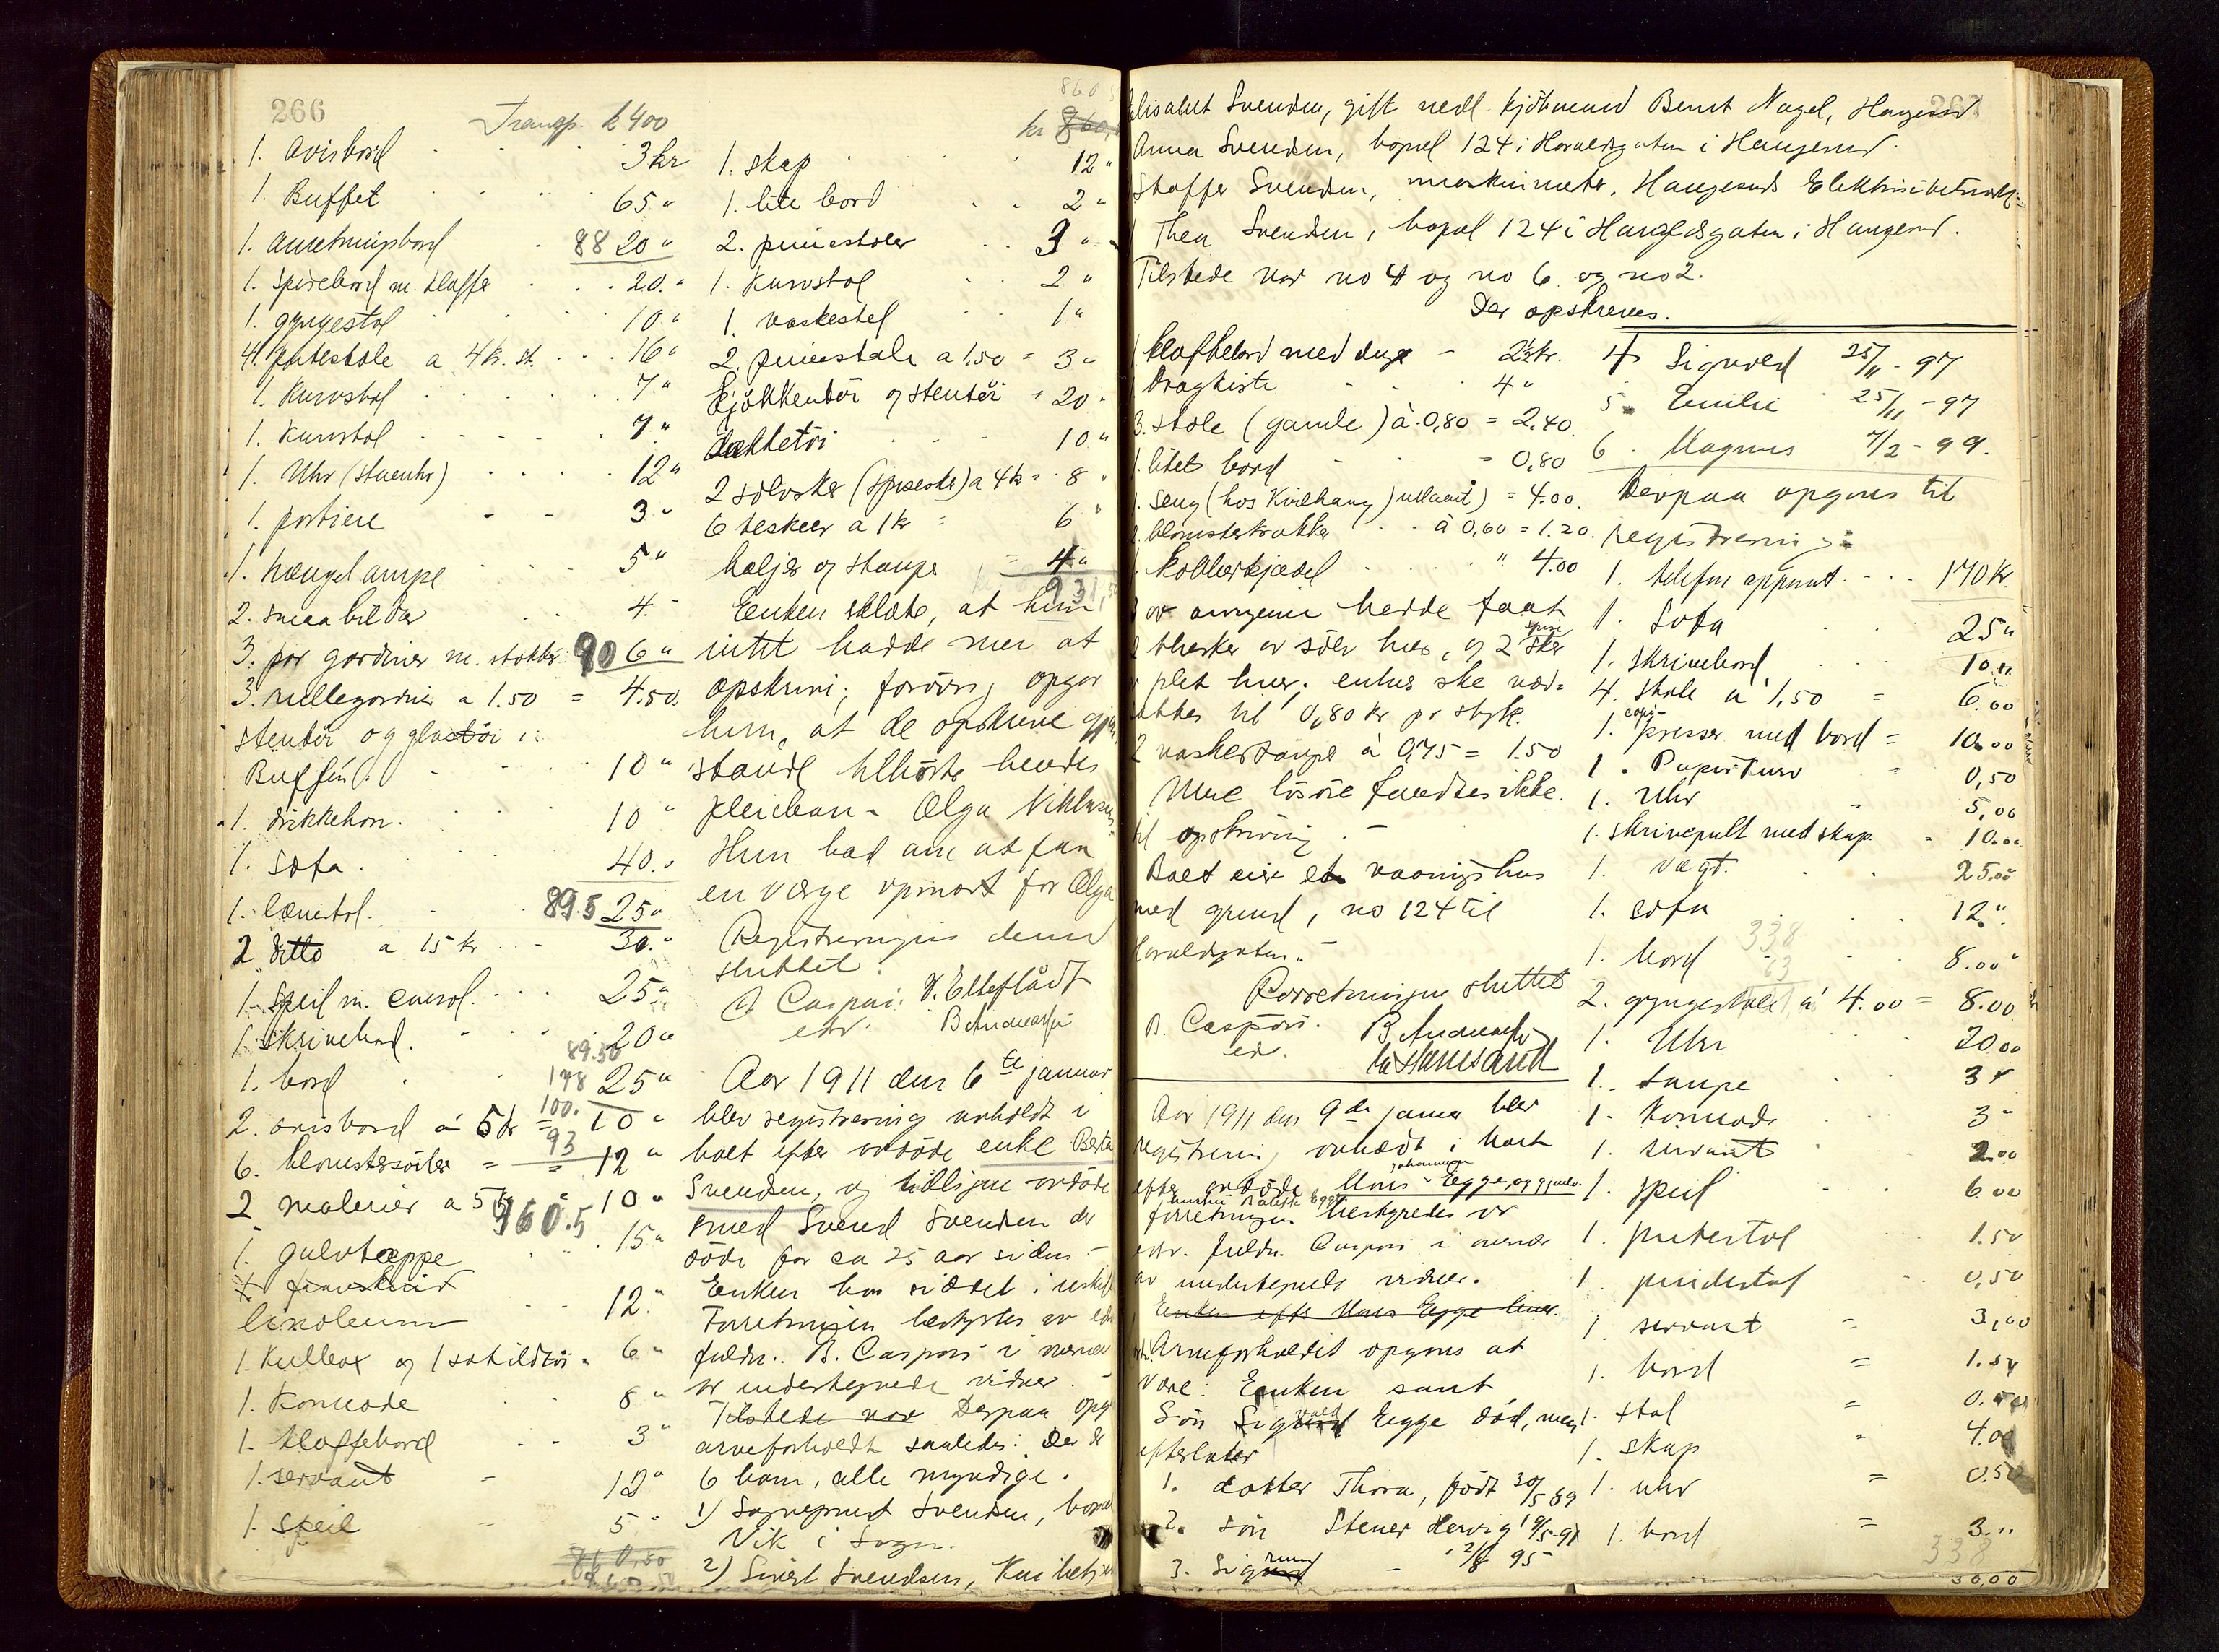 266
Transp. k 400
1. Avisbord 3 kr
1. Buffet 65 "
1. Anretningsbord 88 20 "
1. Spisebord m. klaffer 20. "
1. gyngestol 10 "
4. putestole a 4 kr. st. 16 "
1. Kurvstol 7 "
1. Kurvstol 7. "
1. Uhr (stueuhr) 12 "
1. portiere 3 "
1. hængelampe 5 "
2. smaa bilder 4. "
3. par gardiner m. stokke 90 6 "
3. rullegardiner a 1.50 = 4.50.
Stentöi og glastöi i
Buffén. 10 "
1. drikkehorn. 10 "
1. Sofa. 40. "
1. lænestol. 89.5 25 "
2 ditto a 15 kr 30. "
1. Speil m. consol. 25 "
1. Skrivebord. 20 "
89.50
1. bord 178 25 "
100.
2. avisbord á 5 kr = 10 "
93
6. blomstersöiler = 12 "
2 malerier a 5 kr 10 "
960.5
1. gulvteppe 15 "
linoleum 12. "
1. Kulbox og 1 s 6 "
1. Komode 8 "
1. klaffebord 3 "
1. servant 12 "
1. Speil 5 "
kr 860,
1. skap 12 "
1. lite bord 2 "
2. pinnestoler 3 "
1. Kurvstol 2 "
1. vaskestel 1 "
2. pinnestole a 1,50 = 3 "
Kjökkentöi og stentöi = 20 "
Dækketöi 10 "
2 sölvskeer (spiseske) a 4 kr = 8 "
6 teskeer a 1 kr = 6 "
baljer og stamper = 4 "
931,
Enken erklærte, at hun
intet hadde mer at
opskrive; forövrig opgav
hun, at de opskrevne gjen
stande tilhörte hendes
pleiebarn - Olga Nikklasen
Hun bad om at faa
en Værge opnævnt for Olga
Registreringen dermed
sluttet.
B Caspari. V. Elleflådt
edv. B Andreassen
Aar 1911 den 6te januar
blev registrering avholdt i
boet efter avdöde enke Berta
Svendsen, og tidligere avdöde
smed Svend Svendsen der
döde for ca 25 aar siden -
Enken har siddet i uskift
Forretningen bestyrtes av edv
fuldm. B. Caspari i nærvær
av undertegnede vidner. -
Tilstede var Derpaa opg
arveforholdt saaledes: Der er
6 barn, alle myndige.
1) Sogneprest Svendsen, bopæl
Vik i Sogn.
2) Sivert Svendsen,
Elisabet Svendsen, gift med kjöbmand Bernt Nagel, Haugesund
Anna Svendsen, bopæl 124 i Haraldsgaten i Haugesund.
Staffer Svendsen, maskinmester, Haugesunds Elektricitetsverk
Thea Svendsen, bopæl 124 i Haraldsgaten i Haugesund.
Tilstede var no 4 og no 6 og no 2.
Der opskreves.
1. klaffebord med duge - 2½ kr.
1 Dragkiste 4 "
3. stole (gamle) à 0,80 = 2,40.
1. litet bord = 0,80
1. seng (hos Kvilhaug) = 4.00.
2. blomsterkrukker à 0,60 = 1.20.
1. Kobberkjædel " 4.00
3 av arvingene hadde faat
2 theskeer av sölv hver, og 2 spise skeer
av plet hver; enhver ske vær-
sættes til 0,80 kr pr styk.
2 vaskestamper á 0,75 = 1.50
Mere lösöre fandtes ikke
til opskrivning. -
Boet eier et vaaningshus
med grund, no 124 til
Haraldsgaten. -
Forretningen sluttet
B. Caspari. B. Andreassen
edv.
Aar 1911 den 9de januar blev
registrering avholdt i boet
efter avdöde Mons Johannesen Egge, og gjenlev.
forretningen bestyredes av
edv. fuldm. Caspari i nærvær
av undertegnede vidner.
Enken efter Mons Egge lever.
Arveforholdet opgives at
være: Enken samt
Sön Sigvald Egge död, men
efterlater
1. datter Thora, födt 30/5 89
2. sön Stener Hervig 19/5-91
3. Sigmund - 2/8 95
4 Sigvald 25/11 - 97
5. Emilie 25/11 - 97
6. Magnus 7/2 - 99.
Derpaa opgives til
registrering:
1. telefonapparat 170 kr.
1. Sofa 25 "
1. skrivebord 10. "
4. stole a 1,50 = 6.00
1. copipresser med bord = 10.00
1. Papirkurv = 0,50
1. Uhr 5,00
1. skrivepult med skap = 10.00
1. vægt. 25,00
1. sofa 12 "
338
63
1. bord 8.00 "
2. gyngestole á 4.00 = 8.00
1. Uhr 20.00
1. Lampe 3 "
1. Komode 3 "
1. servant 2.00
1. speil 6.00
1. putestol 1.50
1. pindestol 0,50
1. servant = 3,00
1. bord = 1.50
1. stol = 0.50
1. skap 4.00
1. uhr = 0.50
1. bord = 3. "
338